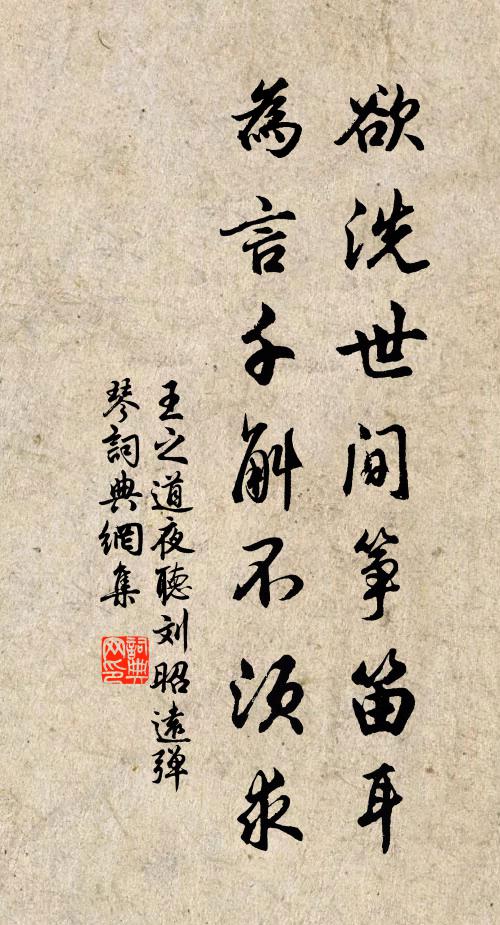 欲洗世间筝笛耳
為言千斛不须求
王之道夜聽刘昭遠弹
琴詞典網集
詞典
网印